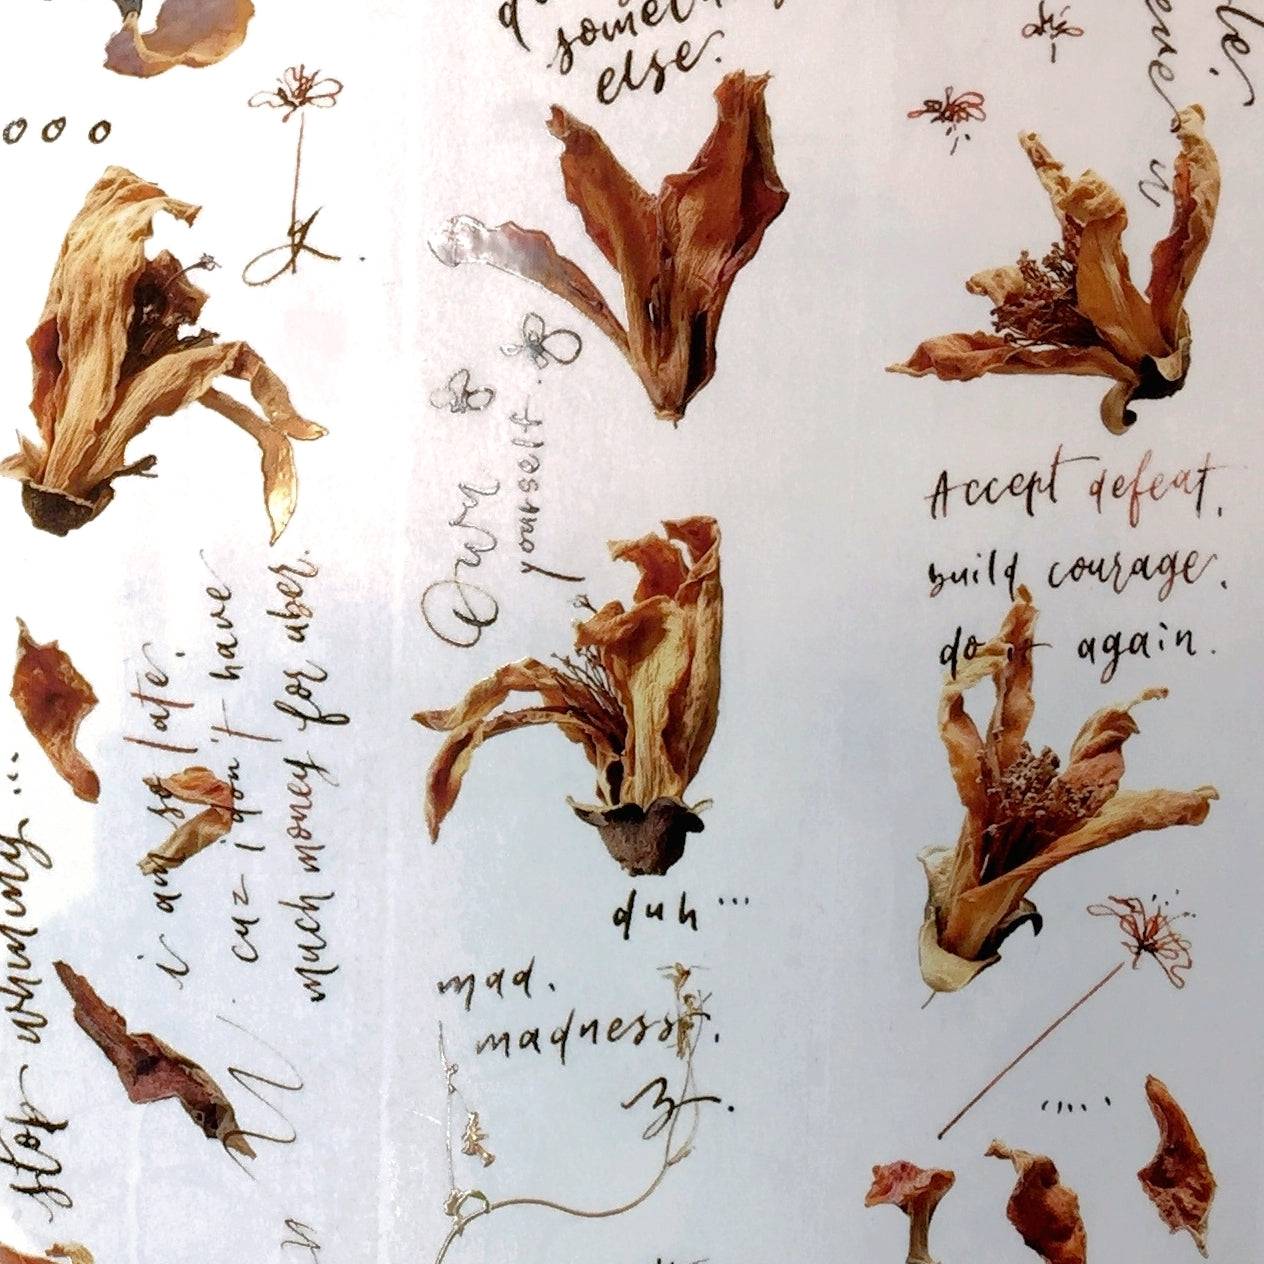 something
else.
Own
yourself.
Accept defeat.
build courage.
do it again.
i am so late.
cuz i don't have
much money for uber.
stop whining...
duh...
mad.
madness.